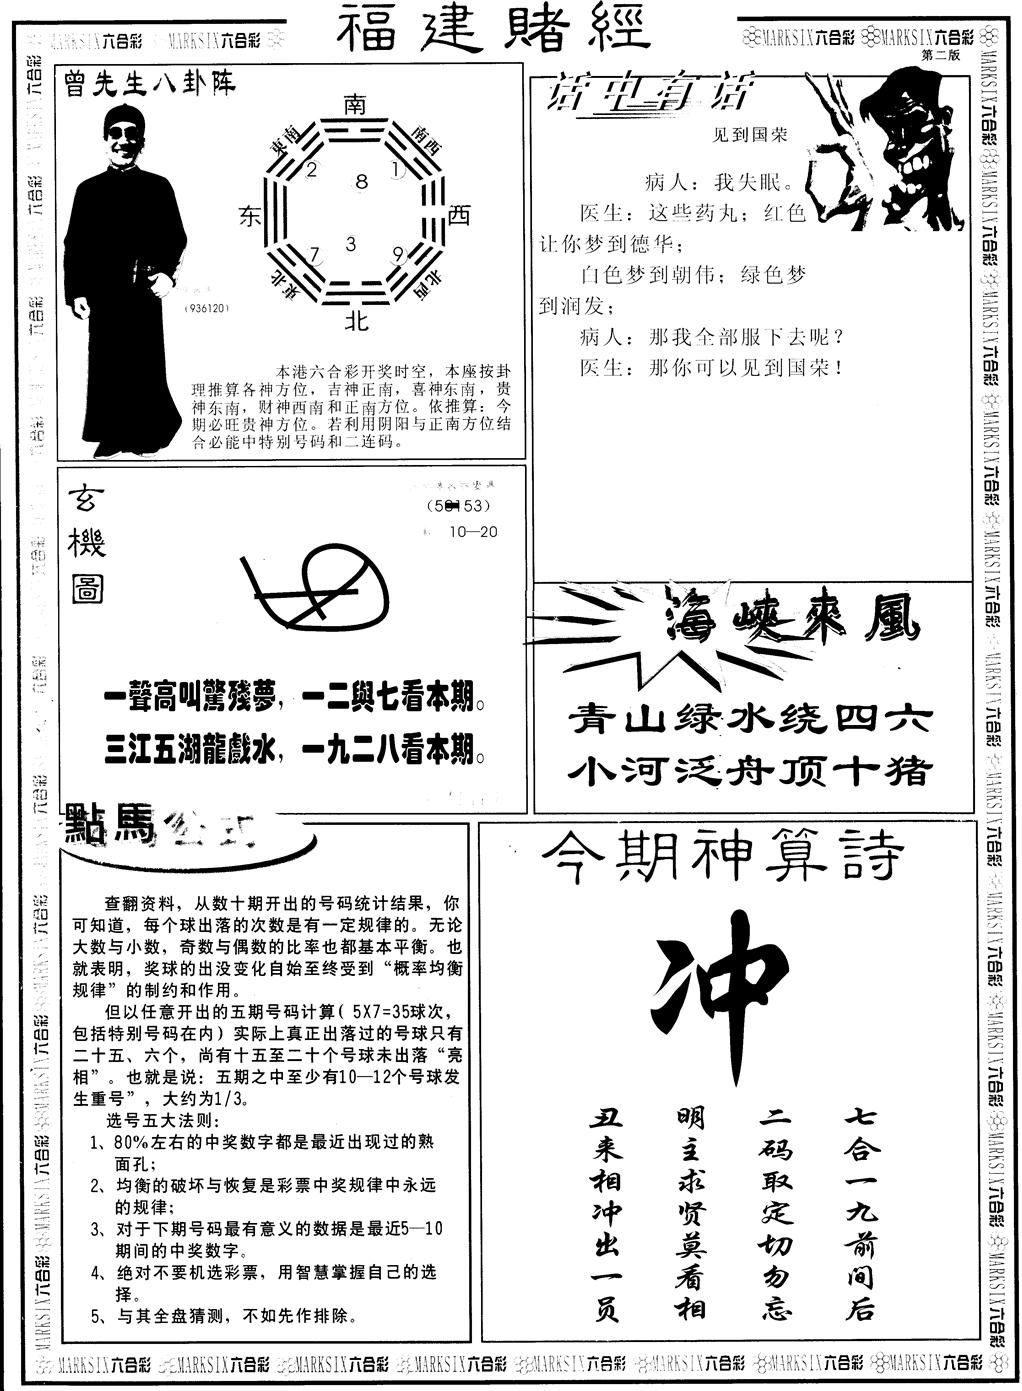 福建賭經
MARKSIX六合彩
第二版
曾先生八卦阵
南
東南
南西
2
8
1
东
西
7
3
9
東北
北西
北
(936120)
本港六合彩开奖时空，本座按卦
理推算各神方位，吉神正南，喜神东南，贵
神东南，财神西南和正南方位。依推算：今
期必旺贵神方位。若利用阴阳与正南方位结
合必能中特别号码和二连码。
话中有话
见到国荣
病人：我失眠。
医生：这些药丸；红色
让你梦到德华；
白色梦到朝伟；绿色梦
到润发；
病人：那我全部服下去呢？
医生：那你可以见到国荣！
玄機圖
10—20
一聲高叫驚殘夢，一二與七看本期。
三江五湖龍戲水，一九二八看本期。
海峽來風
青山绿水绕四六
小河泛舟顶十猪
點馬公式
查翻资料，从数十期开出的号码统计结果，你
可知道，每个球出落的次数是有一定规律的。无论
大数与小数，奇数与偶数的比率也都基本平衡。也
就表明，奖球的出没变化自始至终受到“概率均衡
规律”的制约和作用。
但以任意开出的五期号码计算(5X7=35球次，
包括特别号码在内)实际上真正出落过的号球只有
二十五、六个，尚有十五至二十个号球未出落“亮
相”。也就是说：五期之中至少有10—12个号球发
生重号”，大约为1/3。
选号五大法则：
1、80%左右的中奖数字都是最近出现过的熟
面孔；
2、均衡的破坏与恢复是彩票中奖规律中永远
的规律；
3、对于下期号码最有意义的数据是最近5—10
期间的中奖数字。
4、绝对不要机选彩票，用智慧掌握自己的选
择。
5、与其全盘猜测，不如先作排除。
今期神算詩
冲
七合一九前间后
二码取定切勿忘
明主求贤莫看相
丑来相冲出一员